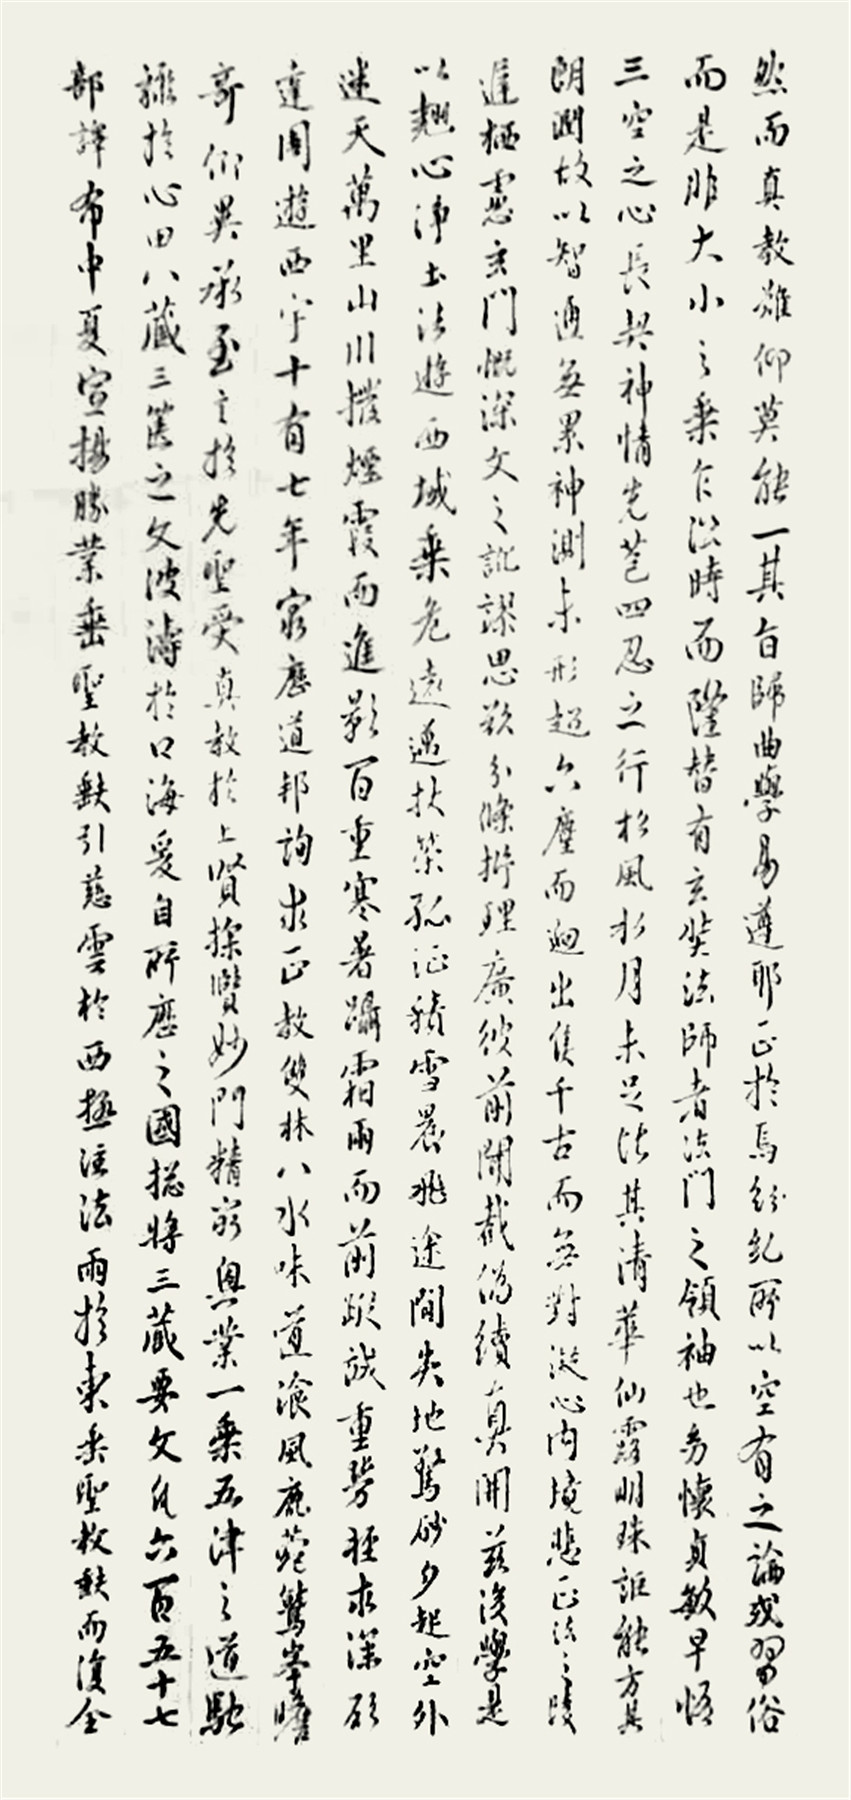 然而真教難仰莫能一其旨歸曲學易遵耶正於焉紛糺所以空有之論或習俗
而是非大小之乘乍沿時而隆替有玄奘法師者法門之領袖也幼懷貞敏早悟
三空之心長契神情先苞四忍之行松風水月未足比其清華仙露明珠詎能方其
朗潤故以智通無累神測未形超六塵而迥出隻千古而無對凝心內境悲正法之陵
遲栖慮玄門慨深文之訛謬思欲分條析理廣彼前聞截偽續真開茲後學是
以翹心淨土法遊西域乘危遠邁杖策孤征積雪晨飛途間失地驚砂夕起空外
迷天萬里山川撥煙霞而進影百重寒暑躡霜雨而前蹤誠重勞輕求深願
達周遊西宇十有七年窮歷道邦詢求正教雙林八水味道湌風鹿菀鷲峯瞻
奇仰異承至言於先聖受真教於上賢探賾妙門精窮奧業一乘五津之道馳
驟於心田八藏三篋之文波濤於口海爰自所歷之國總將三藏要文凡六百五十七
部譯布中夏宣揚勝業垂聖教缺引慈雲於西極注法雨於東垂聖教缺而復全